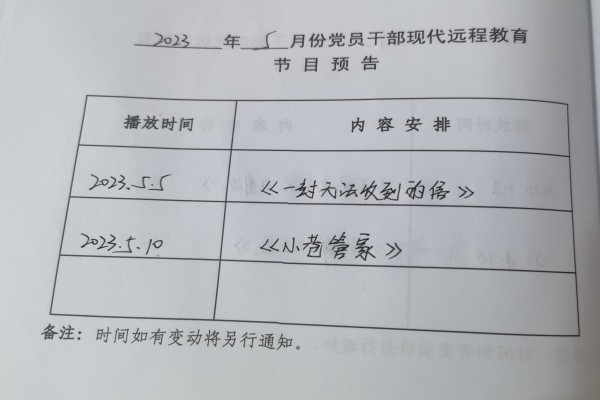 2023 年 5 月份党员干部现代远程教育
节目预告
播放时间 内容安排
2023.5.5 《一封无法收到的信》
2023.5.10 《小巷管家》
备注：时间如有变动将另行通知。